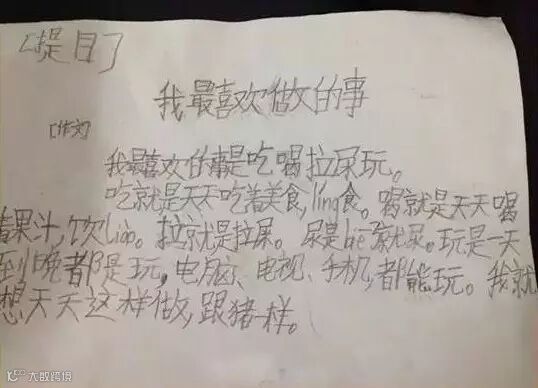 [提目]
我最喜欢做的事
[作文]
我最喜欢的事是吃喝拉尿玩。
吃就是天天吃着美食,ling食。喝就是天天喝
着果汁,饮liao。拉就是拉屎。尿是就尿。玩是一天
到晚都是玩,电脑、电视、手机,都能玩。我就
想天天这样做,跟猪一样。
大数跨境